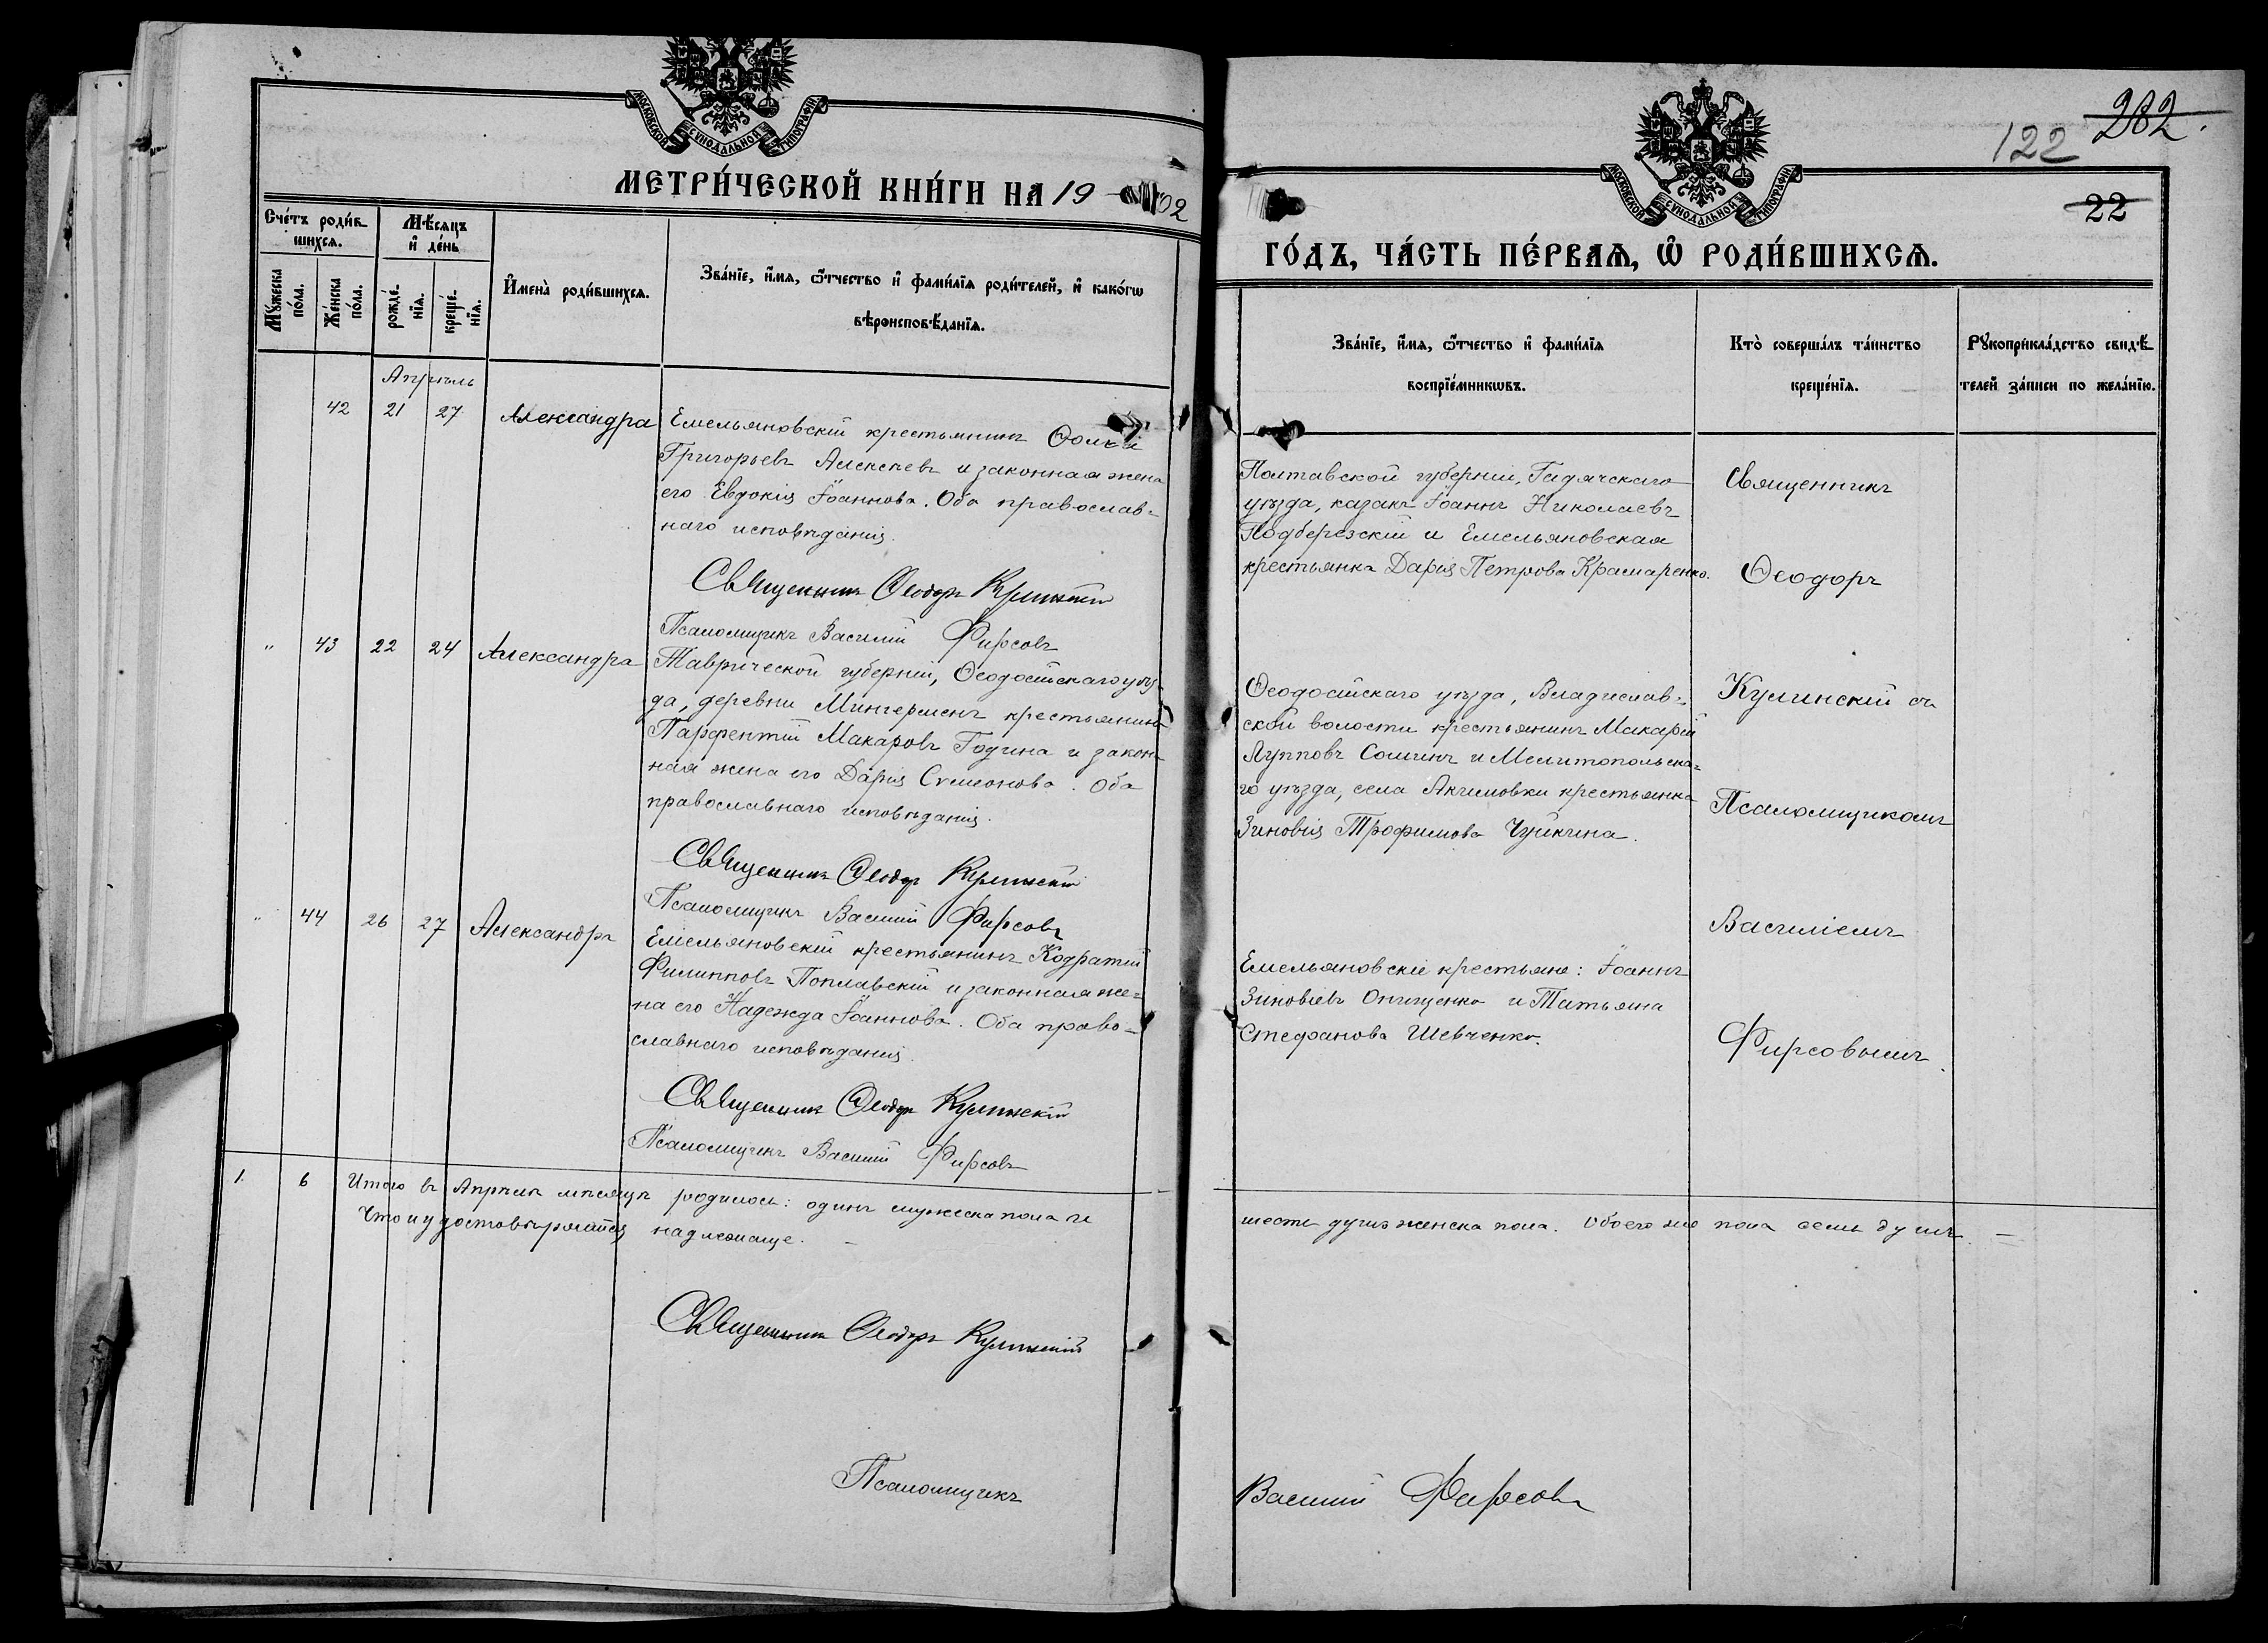 МОСКОВСКОЙ СѴНОДАЛЬНОЙ ТИПОГРАФІИ
МЕТРИ́ЧЕСКОЙ КНИ́ГИ НА 19 02
Сче́тъ роди́в
шихся.
Мѣ́сяцъ
и де́нь
Му́жеска
по́ла.
Же́нска
по́ла.
рожде́-
нія.
креще́-
нія.
Имена̀ роди́вшихся.
Зва́ніе, и́мя, ѻ҆́тчество и фами́лія роди́телей, и како́гѡ
вѣроисповѣ́данія.
Апрѣль
42 21 27. Александра
Емельяновскій крестьянинъ
Григорьевъ Алексѣевъ и законная жена
его Евдокія Іоаннова. Оба православ-
наго исповѣданія.
Священникъ Ѳеодоръ Кулинскій
Псаломщикъ Василій Фирсовъ
" 43 22 24 Александра
Таврической губерніи, Ѳеодосійскаго уѣз-
да, деревни Мингерменъ крестьянинъ
Парфентій Макаровъ Година и закон-
ная жена его Дарія Сѵмеонова. Оба
православнаго исповѣданія.
Священникъ Ѳеодоръ Кулинскій
Псаломщикъ Василій Фирсовъ
" 44 26 27 Александра
Емельяновскій крестьянинъ Кодратій
Филипповъ Поплавскій и законная же-
на его Надежда Іоаннова. Оба право-
славнаго исповѣданія.
Священникъ Ѳеодоръ Кулинскій
Псаломщикъ Василій Фирсовъ
1. 6 Итого въ Апрѣлѣ мѣсяцѣ родилось: одинъ мужеска пола и
Что и удостовѣряется надлежаще. —
Священникъ Ѳеодоръ Кулинскій
Псаломщикъ
122 282.
МОСКОВСКОЙ СѴНОДАЛЬНОЙ ТИПОГРАФІИ
22
ГО́ДЪ, ЧА́СТЬ ПЕ́РВАЯ, Ѡ҆ РОДИ́ВШИХСЯ.
Зва́ніе, и́мя, ѻ҆́тчество и фами́лія
воспріе́мникѡвъ.
Кто̀ соверша́лъ та́инство
креще́нія.
Рукоприкла́дство свидѣ́-
телей за́писи по жела́нію.
Полтавской губерніи, Гадячскаго
уѣзда, казакъ Іоаннъ Николаевъ
Подберезскій и Емельяновская
крестьянка Дарія Петрова Крамаренко.
Ѳеодосійскаго уѣзда, Владислав-
ской волости крестьянинъ Макарій
Лупповъ Сошинъ и Мелитопольска-
го уѣзда, села Акимовки крестьянка
Зиновія Трофимова Чуйкина.
Емельяновскіе крестьяне: Іоаннъ
Зиновіевъ Онищенко и Татьяна
Стефанова Шевченко.
Священникъ
Ѳеодоръ
Кулинскій съ
Псаломщикомъ
Василіемъ
Фирсовымъ.
шесть душъ женска пола. Обоего же пола семь душъ. —
Василій Фирсовъ